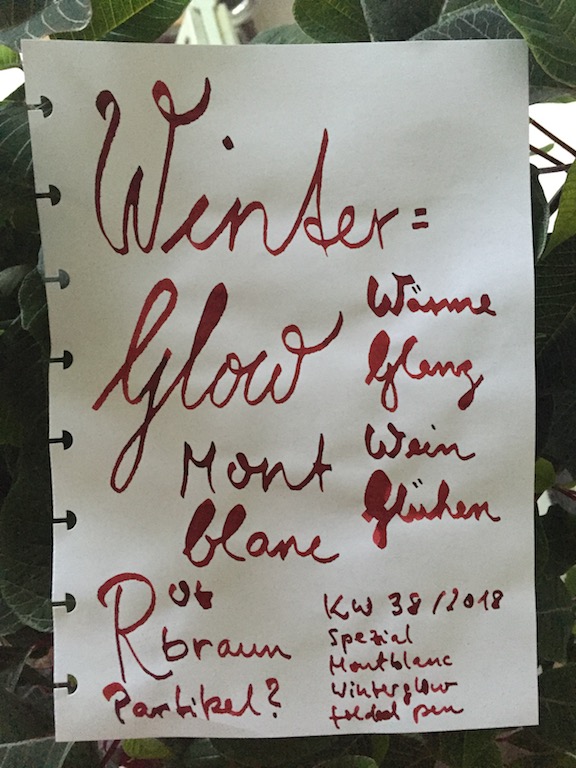 Winter=
Glow
Wärme
Glanz
Wein
Glühen
Mont
blanc
Rot
braun
Partikel?
KW 38/2018
Spezial
Montblanc
Winterglow
folded pen